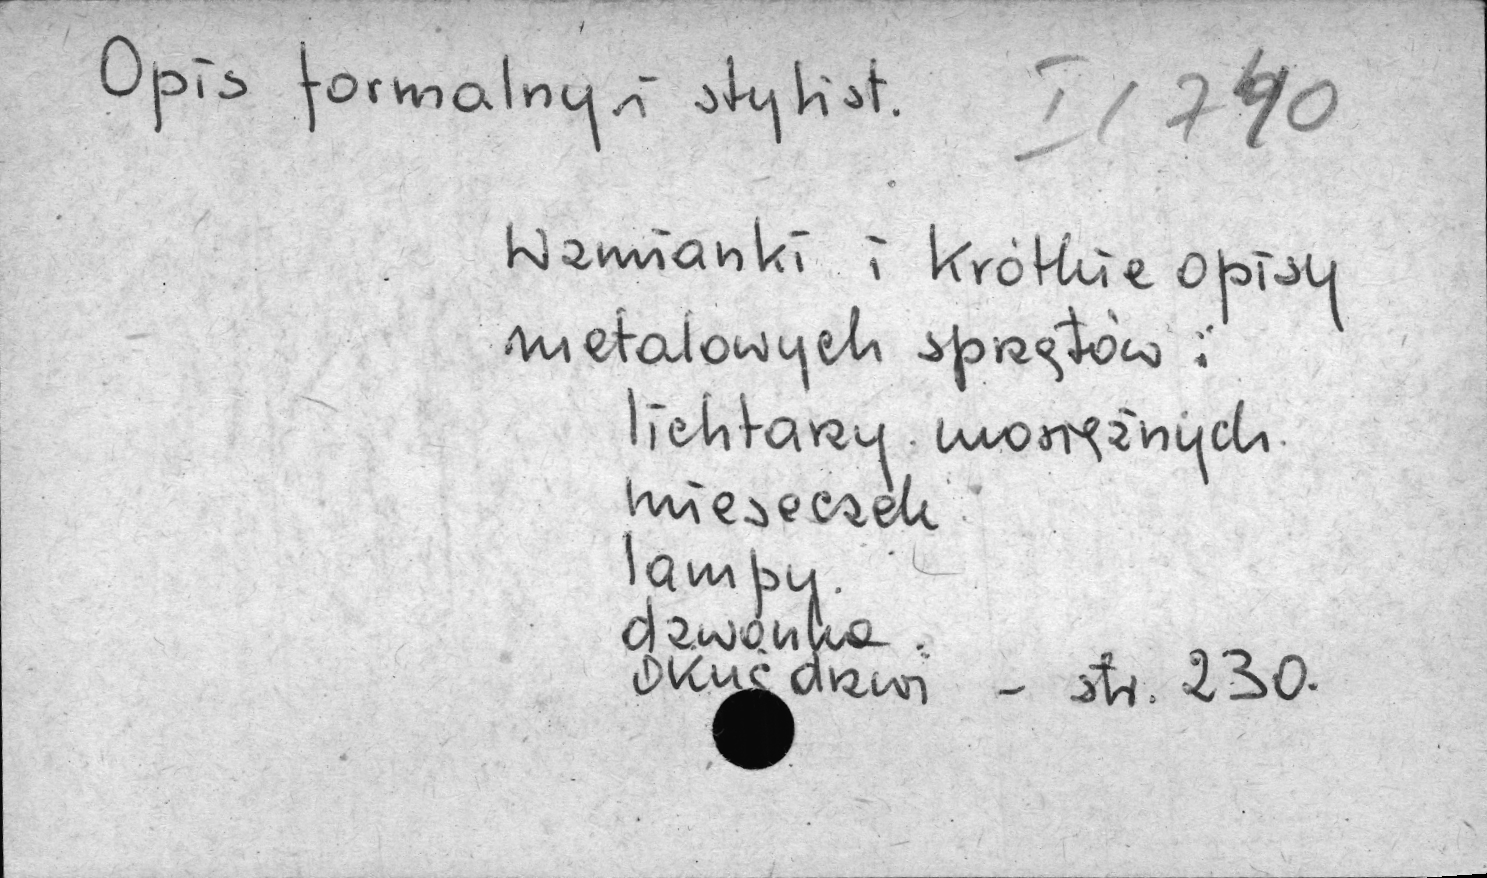 Opis formalny i stylist. I/740
Wzmianki i krótkie opisy
metalowych sprzętów:
lichtarzy mosiężnych.
mieseczek
lampy.
dzwonka.
okuć drzwi - str. 230.